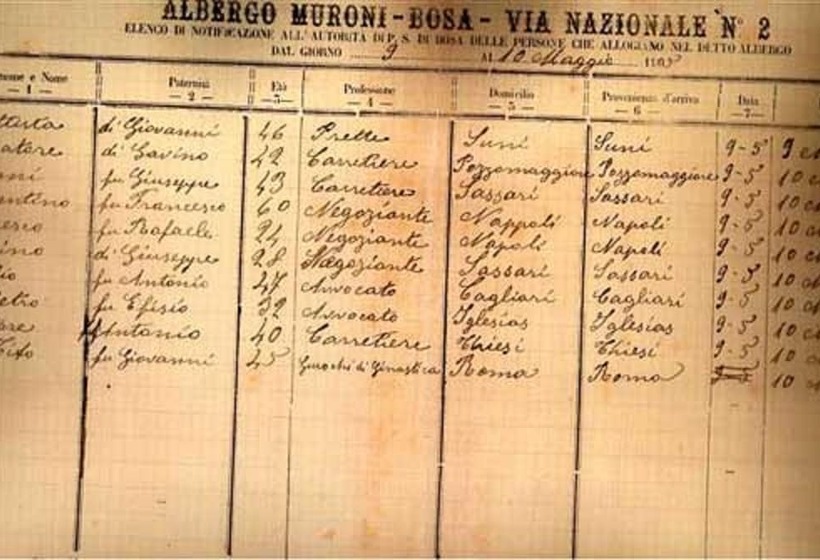 ALBERGO MURONI-BOSA - VIA NAZIONALE N° 2
ELENCO DI NOTIFICAZIONE ALL'AUTORITÀ DI P. S. DI BOSA DELLE PERSONE CHE ALLOGIANO NEL DETTO ALBERGO
DAL GIORNO 9 AL 10 Maggio
nome e Nome Paternità Età Professione Domicilio Provenienza d'arrivo Data
— 1 — — 2 — — 3 — — 4 — — 5 — — 6 — — 7 —
di Giovanni 46 Prette Suni Suni 9-5 9
di Gavino 42 Carretiere Pozzomaggiore Pozzomaggiore 9-5 10
fu Giuseppe 43 Carretiere Sassari Sassari 9-5 10
fu Francesco 60 Negoziante Nappoli Napoli 9-5 10
fu Rafaele 24 Negoziante Napoli Napoli 9-5 10
di Giuseppe 28 Negoziante Sassari Sassari 9-5 10
fu Antonio 47 Avvocato Cagliari Cagliari 9-5 10
fu Efisio 32 Avvocato Iglesias Iglesias 9-5 10
Antonio 40 Carretiere Thiesi Thiesi 9-5 10
fu Giovanni 45 di Ginastica Roma Roma 10